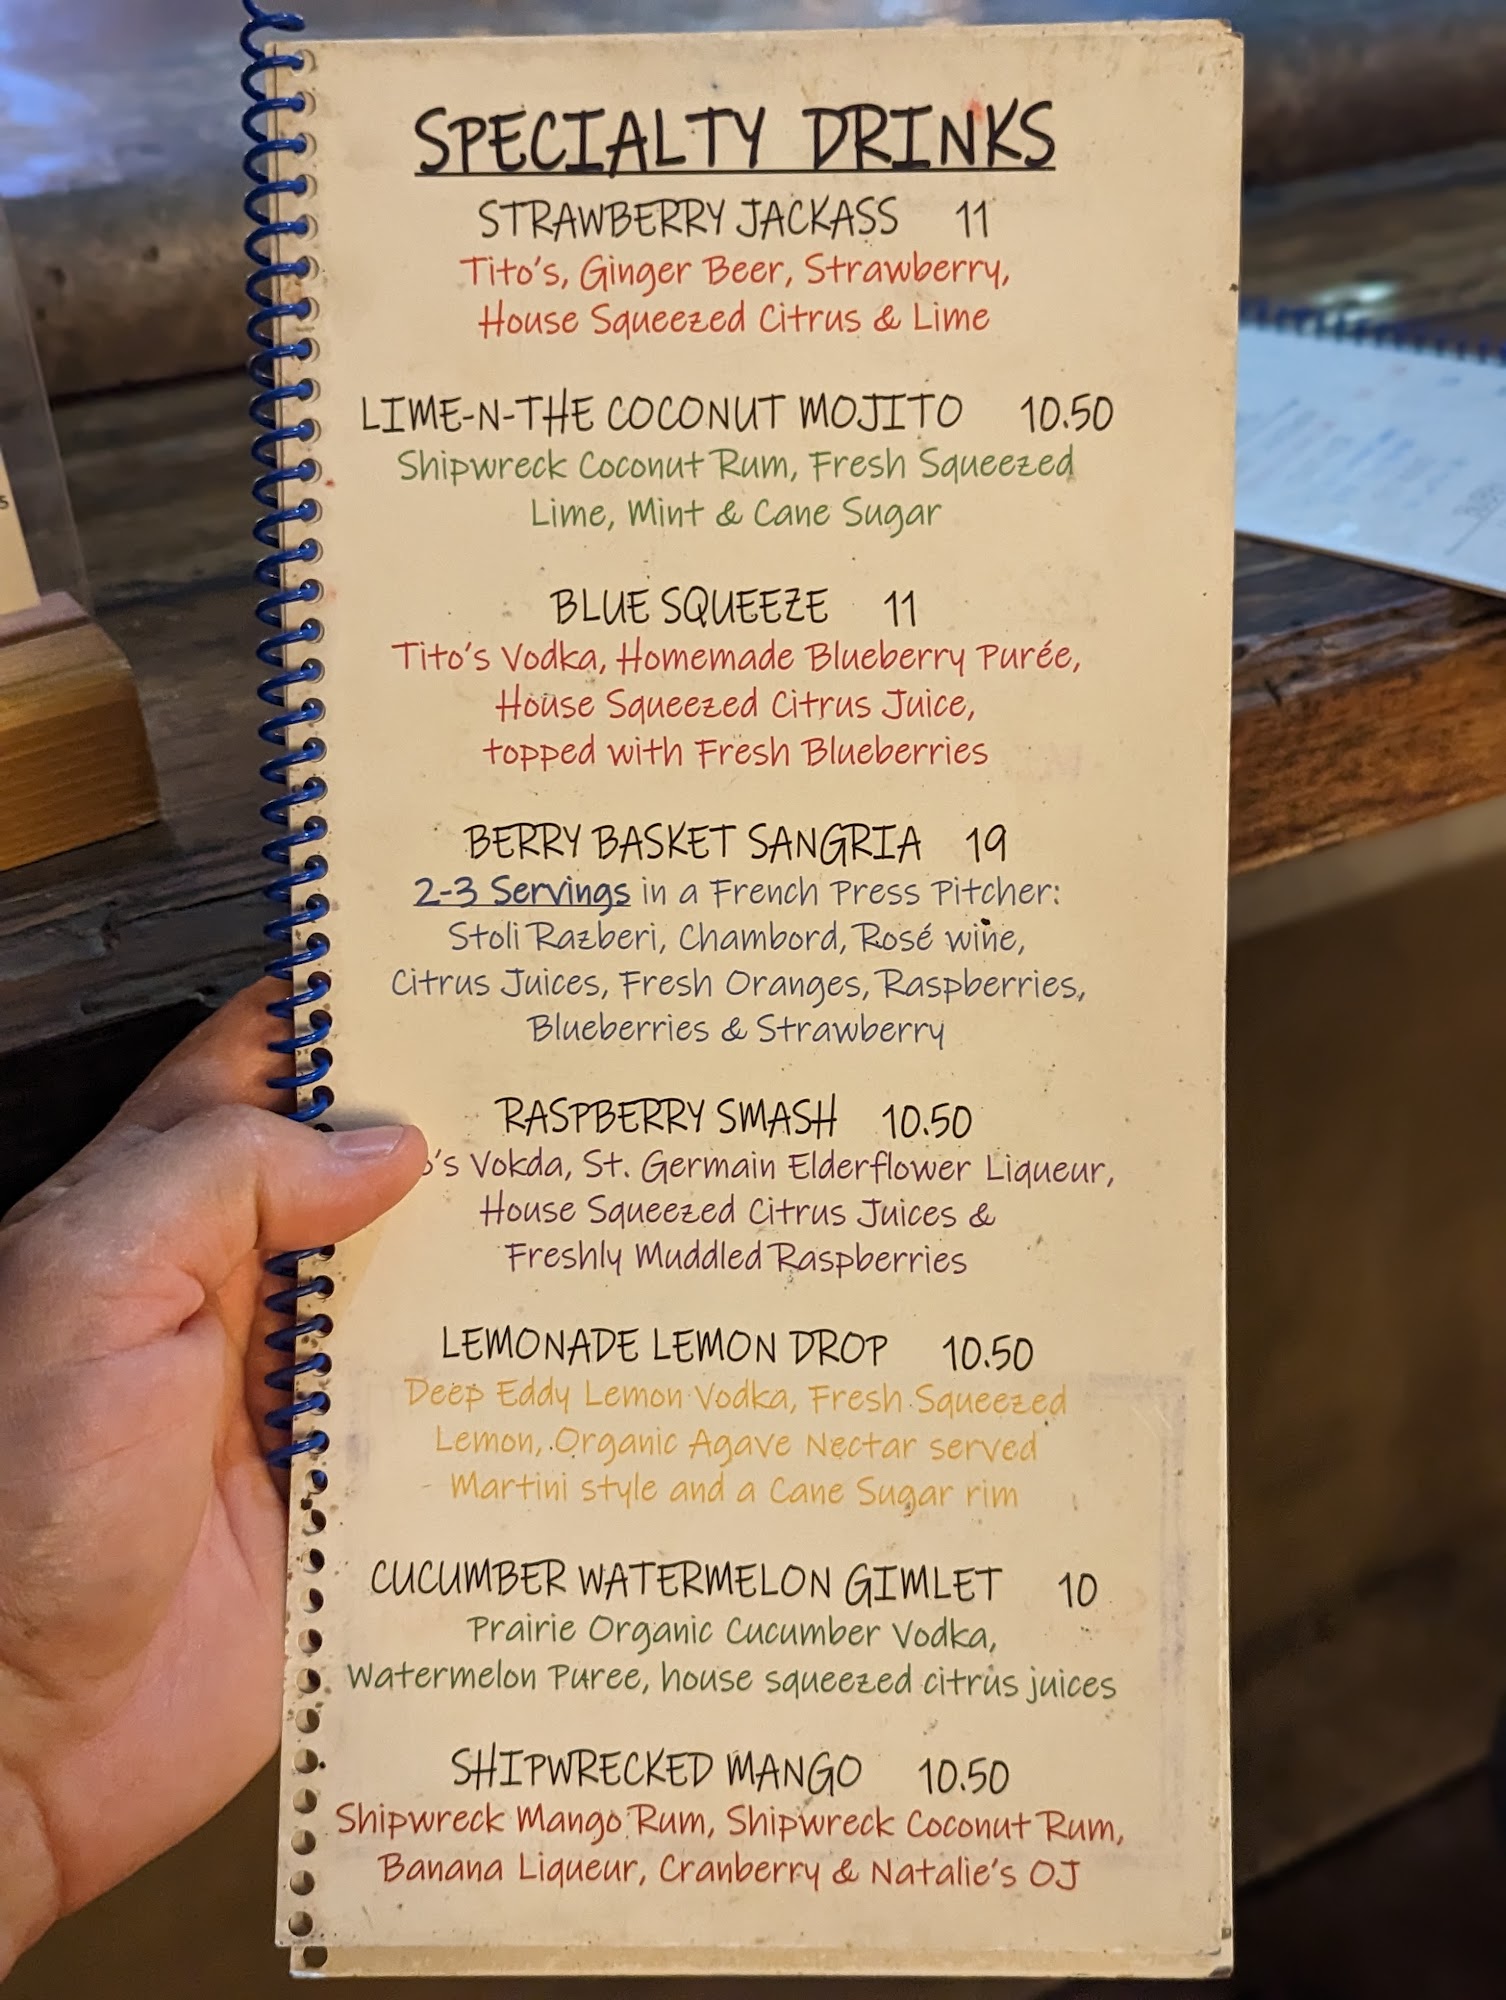 SPECIALTY DRINKS
STRAWBERRY JACKASS 11
Tito's, Ginger Beer, Strawberry,
House Squeezed Citrus & Lime
LIME-N-THE COCONUT MOJITO 10.50
Shipwreck Coconut Rum, Fresh Squeezed
Lime, Mint & Cane Sugar
BLUE SQUEEZE 11
Tito's Vodka, Homemade Blueberry Purée,
House Squeezed Citrus Juice,
topped with Fresh Blueberries
BERRY BASKET SANGRIA 19
2-3 Servings in a French Press Pitcher:
Stoli Razberi, Chambord, Rosé wine,
Citrus Juices, Fresh Oranges, Raspberries,
Blueberries & Strawberry
RASPBERRY SMASH 10.50
o's Vokda, St. Germain Elderflower Liqueur,
House Squeezed Citrus Juices &
Freshly Muddled Raspberries
LEMONADE LEMON DROP 10.50
Deep Eddy Lemon Vodka, Fresh Squeezed
Lemon, Organic Agave Nectar served
Martini style and a Cane Sugar rim
CUCUMBER WATERMELON GIMLET 10
Prairie Organic Cucumber Vodka,
Watermelon Puree, house squeezed citrus juices
SHIPWRECKED MANGO 10.50
Shipwreck Mango Rum, Shipwreck Coconut Rum,
Banana Liqueur, Cranberry & Natalie's OJ